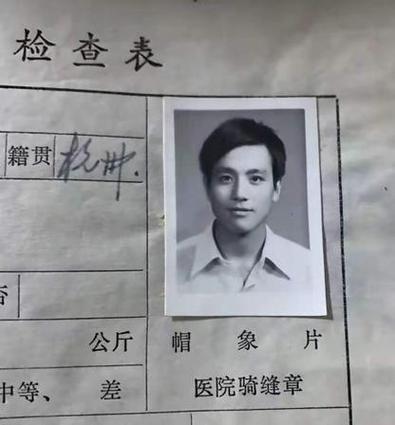 检查表
籍贯 杭州.
否
公斤 帽象片
中等、差 医院骑缝章